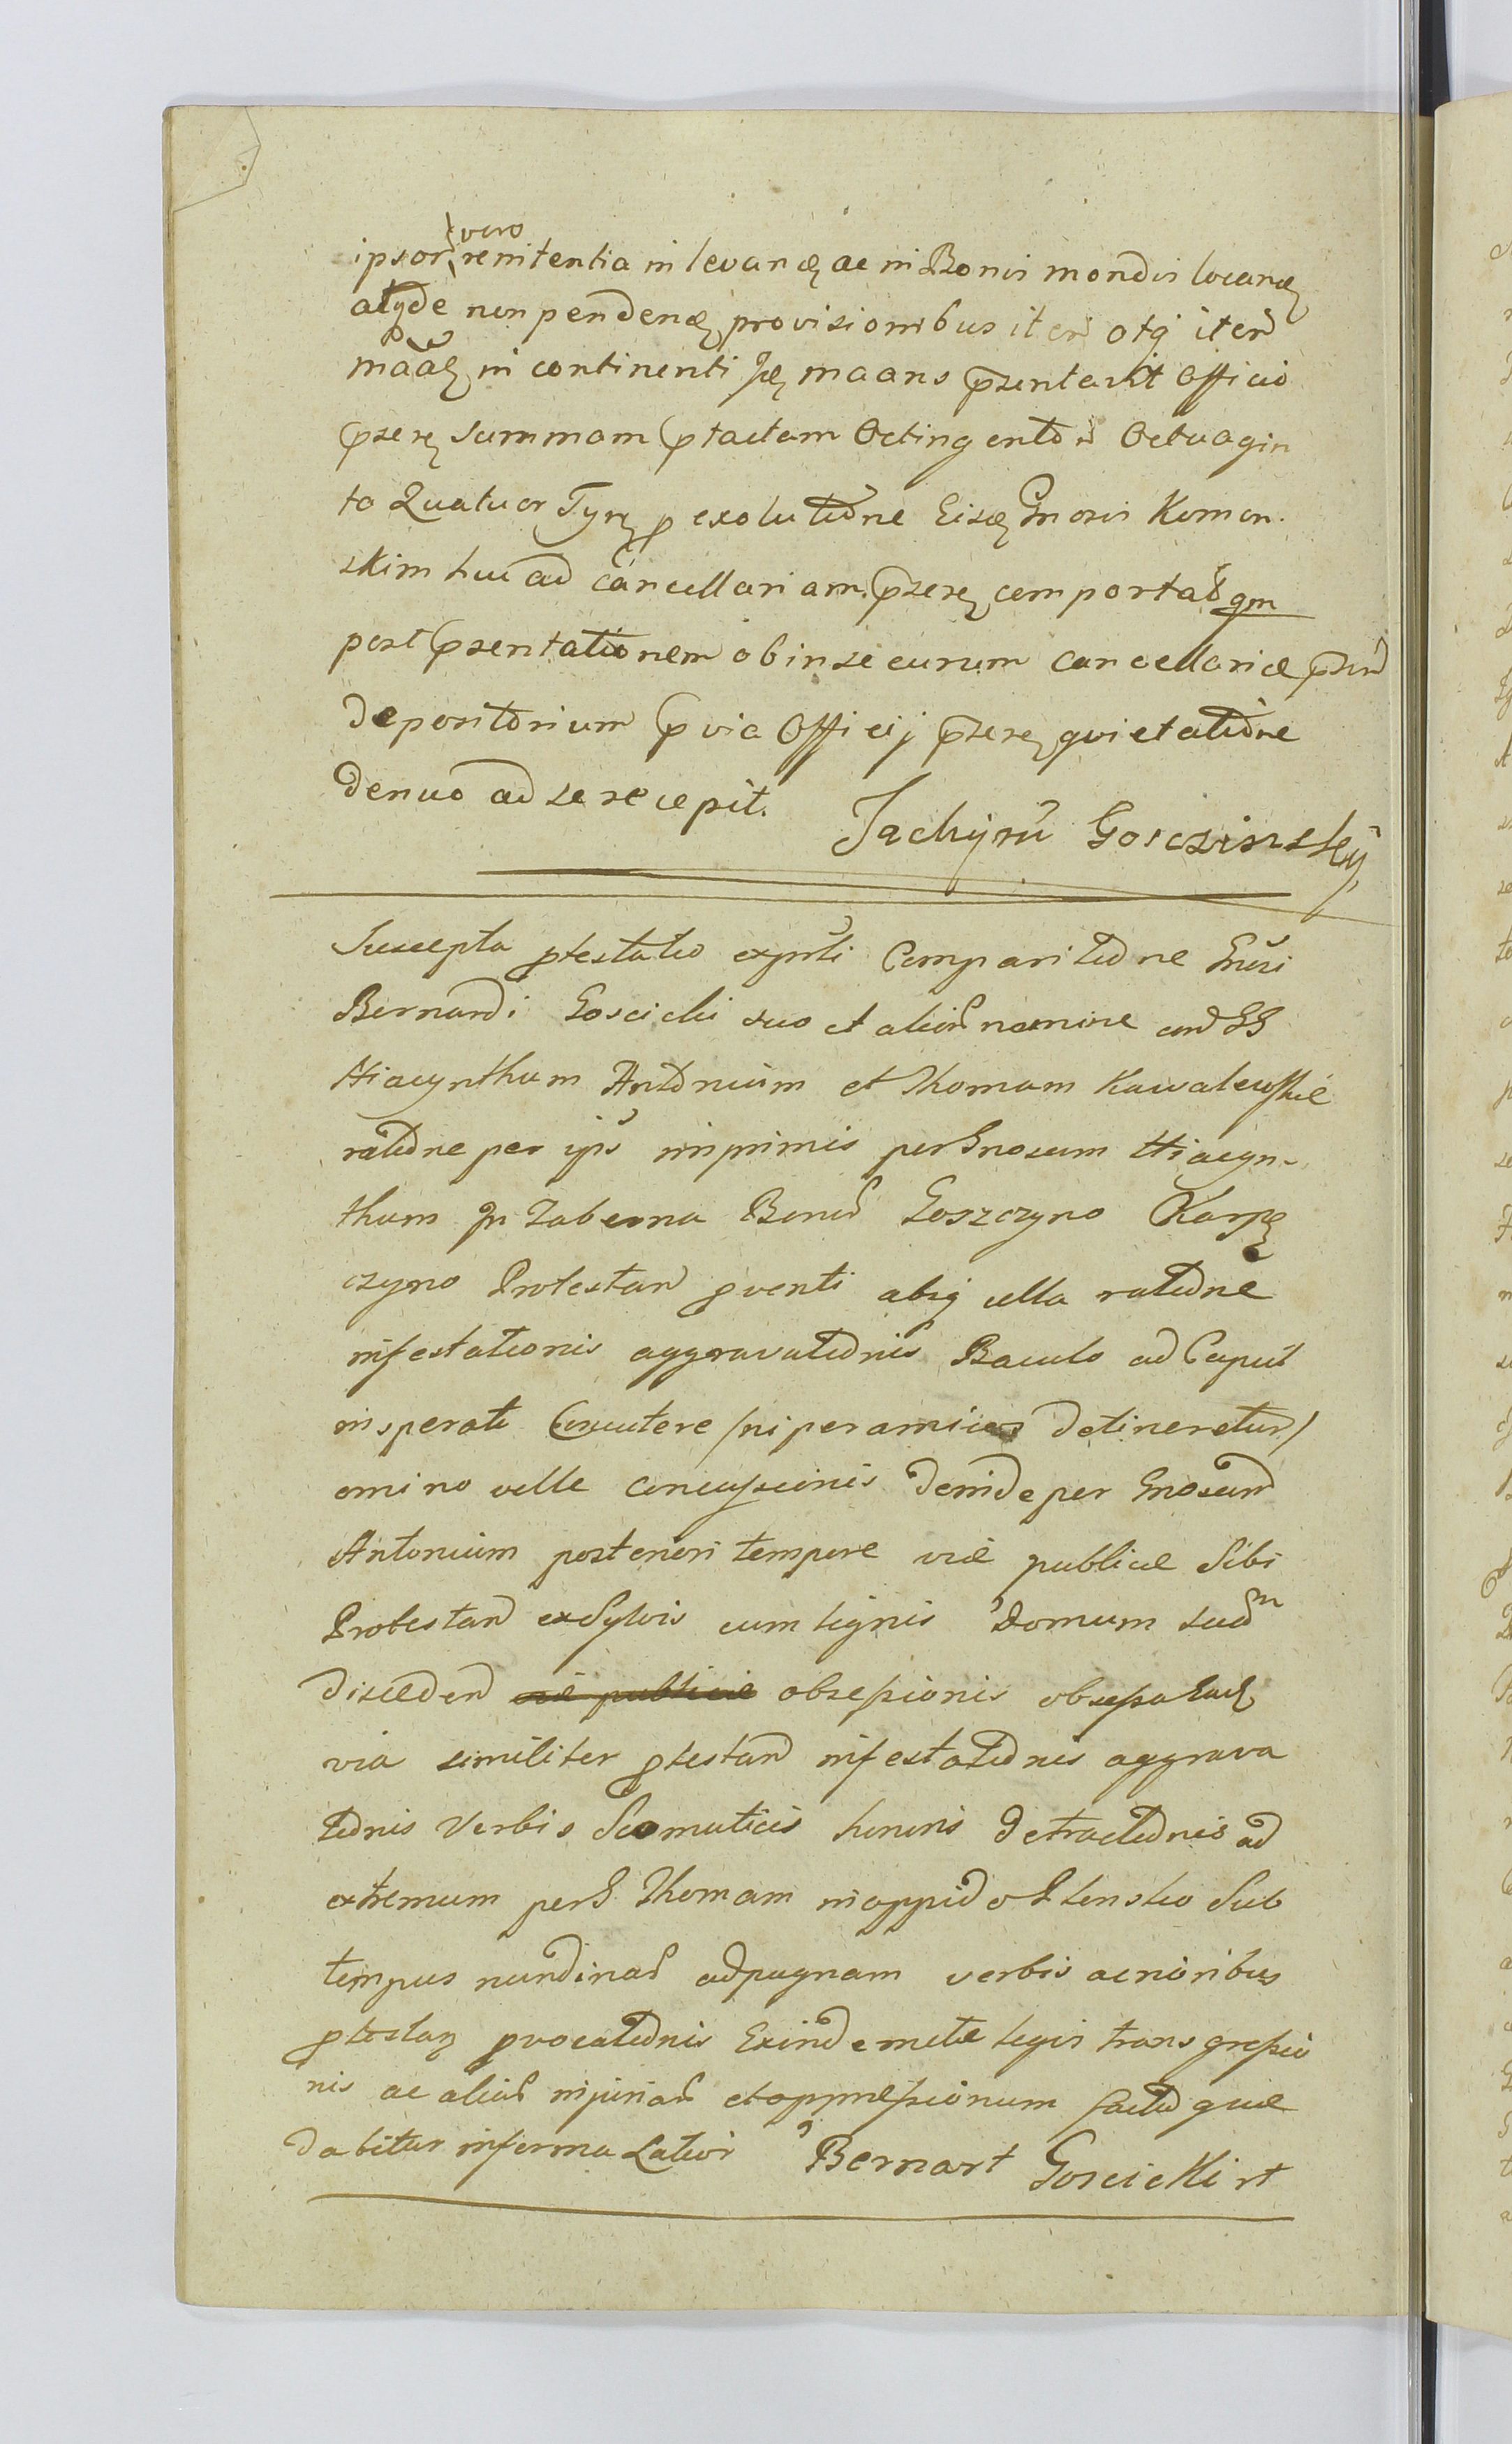 vero
ipsor renitentia in levandę ac in Bonis mondis locandę
atqde non pendendę provisionibus iterū atq iterū
māāę in continenti Jdę maans prsentavit Officio
prserę Summam ptactam Octingentorū Octuagin
ta Quatuor Tynę p exolutiōne Eisdę Gnosis Komon.
skim huc ad Cancellariam prserę comportatā qm
post prsentationem ob insecurum cancellariæ prsenti
depositorium prvia Officij prserę quietatiōne
denuo ad se recepit.
Jachym Gosczinsky
Suscepta ptestatio ex pnti Comparitiōne Gnosi
Bernardi Goscicki suo et alior nomine cord GG
Hiacynthum Antonium et Thomam Kawalewskie
ratiōne per ips imprimis per Gnosum Hiacyn-
thum In Taberna Bonor Goszczyno Karpę
czyno Protestan pventi absq ulla ratiōne
infestationis aggravatiōnis Baculo ad Caput
insperate Excutere /ni per amicos detineretur/
omino velle concussionis deinde per Gnosum
Antonium posteriori tempore viæ publicæ Sibi
Protestan ex Sylvis cum lignis Domum suam
discedend viæ publicæ obsessionis obsessaq eadę
via similiter ptestan infestatiōnis aggrava
tiōnis Verbis Scomaticis honoris detractiōnis ad
extremum per G Thomam in oppido Stensko Sub
tempus nundinar ad pugnam verbis acrioribus
ptestan pvocatiōnis Exinde metæ legis transgressio
nis ac aliar injuriar et oppressionum factō quæ
dabitur informa Latior Bernart Goscicki rt